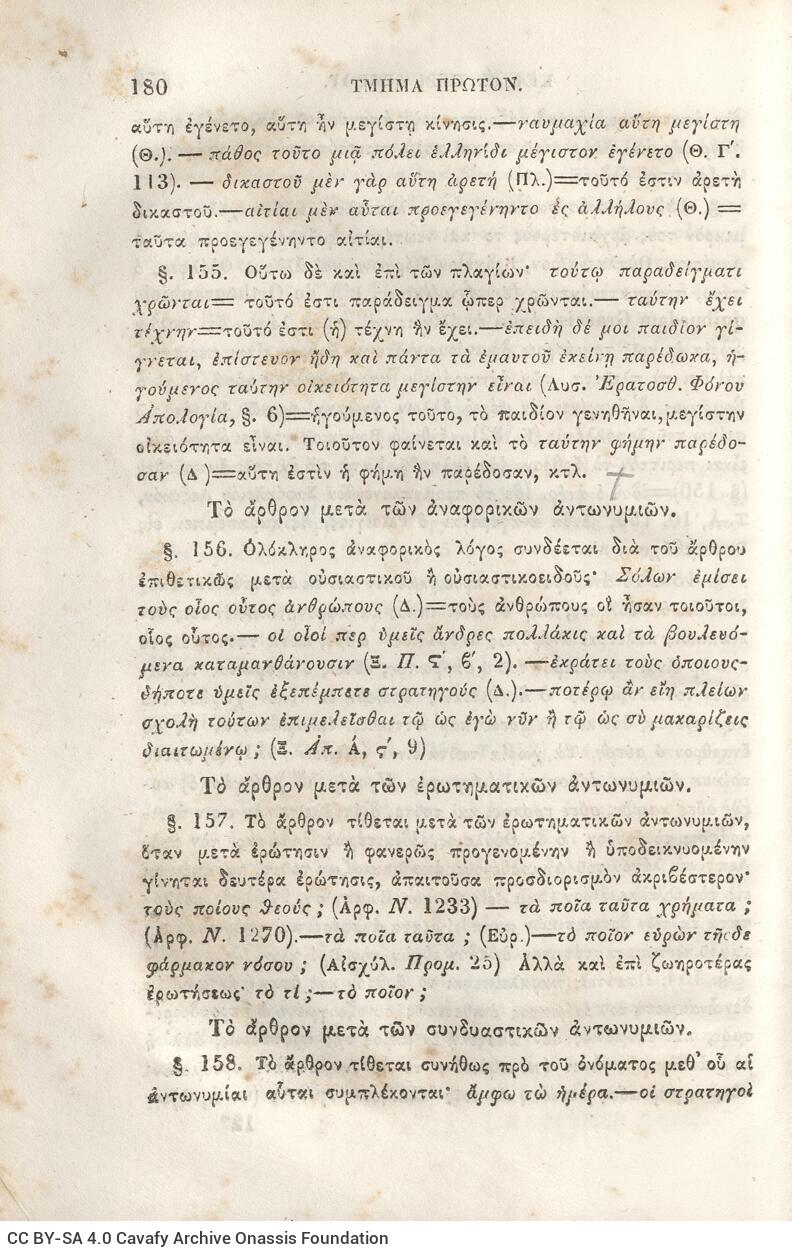 180 ΤΜΗΜΑ ΠΡΩΤΟΝ.
αὕτη ἐγένετο, αὕτη ἦν μεγίστη κίνησις.—ναυμαχία αὕτη μεγίστη
(Θ.). — πάθος τοῦτο μιᾷ πόλει ἑλληνίδι μέγιστον ἐγένετο (Θ. Γʹ.
113). — δικαστοῦ μὲν γὰρ αὕτη ἀρετή (Πλ.)=τοῦτό ἐστιν ἀρετὴ
δικαστοῦ.—αἰτίαι μὲν αὗται προεγεγένηντο ἐς ἀλλήλους (Θ.) =
ταῦτα προεγεγένηντο αἰτίαι.
§. 155. Οὕτω δὲ καὶ ἐπὶ τῶν πλαγίων· τούτῳ παραδείγματι
χρῶνται= τοῦτό ἐστι παράδειγμα ᾧπερ χρῶνται.— ταύτην ἔχει
τέχνην=τοῦτό ἐστι (ἡ) τέχνη ἣν ἔχει.—ἐπειδὴ δέ μοι παιδίον γί-
γνεται, ἐπίστευον ἤδη καὶ πάντα τὰ ἐμαυτοῦ ἐκείνῃ παρέδωκα, ἡ-
γούμενος ταύτην οἰκειότητα μεγίστην εἶναι (Λυσ. Ἐρατοσθ. Φόνου
Ἀπολογία, §. 6)=ἡγούμενος τοῦτο, τὸ παιδίον γενηθῆναι, μεγίστην
οἰκειότητα εἶναι. Τοιοῦτον φαίνεται καὶ τὸ ταύτην φήμην παρέδο-
σαν (Δ )=αὕτη ἐστὶν ἡ φήμη ἣν παρέδοσαν, κτλ. +
Τὸ ἄρθρον μετὰ τῶν ἀναφορικῶν ἀντωνυμιῶν.
§. 156. Ὁλόκληρος ἀναφορικὸς λόγος συνδέεται διὰ τοῦ ἄρθρου
ἐπιθετικῶς μετὰ οὐσιαστικοῦ ἢ οὐσιαστικοειδοῦς· Σόλων ἐμίσει
τοὺς οἷος οὗτος ἀνθρώπους (Δ.)=τοὺς ἀνθρώπους οἳ ἦσαν τοιοῦτοι,
οἷος οὗτος.— οἱ οἷοί περ ὑμεῖς ἄνδρες πολλάκις καὶ τὰ βουλευό-
μενα καταμανθάνουσιν (Ξ. Π. Ϛʹ, ϐʹ, 2). —ἐκράτει τοὺς ὁποιους-
δήποτε ὑμεῖς ἐξεπέμπετε στρατηγούς (Δ.).—ποτέρῳ ἂν εἴη πλείων
σχολὴ τούτων ἐπιμελεῖσθαι τῷ ὡς ἐγὼ νῦν ἢ τῷ ὡς σὺ μακαρίζεις
διαιτωμένῳ ; (Ξ. Ἀπ. Ά, ςʹ, 9)
Τὸ ἄρθρον μετὰ τῶν ἐρωτηματικῶν ἀντωνυμιῶν.
§. 157. Τὸ ἄρθρον τίθεται μετὰ τῶν ἐρωτηματικῶν ἀντωνυμιῶν,
ὅταν μετὰ ἐρώτησιν ἢ φανερῶς προγενομένην ἢ ὑποδεικνυομένην
γίνηται δευτέρα ἐρώτησις, ἀπαιτοῦσα προσδιορισμὸν ἀκριϐέστερον·
τοὺς ποίους ϑεούς ; (Ἀρφ. Ν. 1233) — τὰ ποῖα ταῦτα χρήματα ;
(Ἀρφ. Ν. 1270).—τὰ ποῖα ταῦτα ; (Εὐρ.)—τὸ ποῖον εὑρὼν τῆςδε
φάρμακον νόσου ; (Αἰσχύλ. Προμ. 25) Ἀλλὰ καὶ ἐπὶ ζωηροτέρας
ἐρωτήσεως· τὸ τί ;—τὸ ποῖον ;
Τὸ ἄρθρον μετὰ τῶν συνδυαστικῶν ἀντωνυμιῶν.
§. 158. Τὸ ἄρθρον τίθεται συνήθως πρὸ τοῦ ὀνόματος μεθ’ οὗ αἱ
ἀντωνυμίαι αὗται συμπλέκονται· ἄμφω τὼ ἡμέρα.—οἱ στρατηγοὶ
CC BY-SA 4.0 Cavafy Archive Onassis Foundation